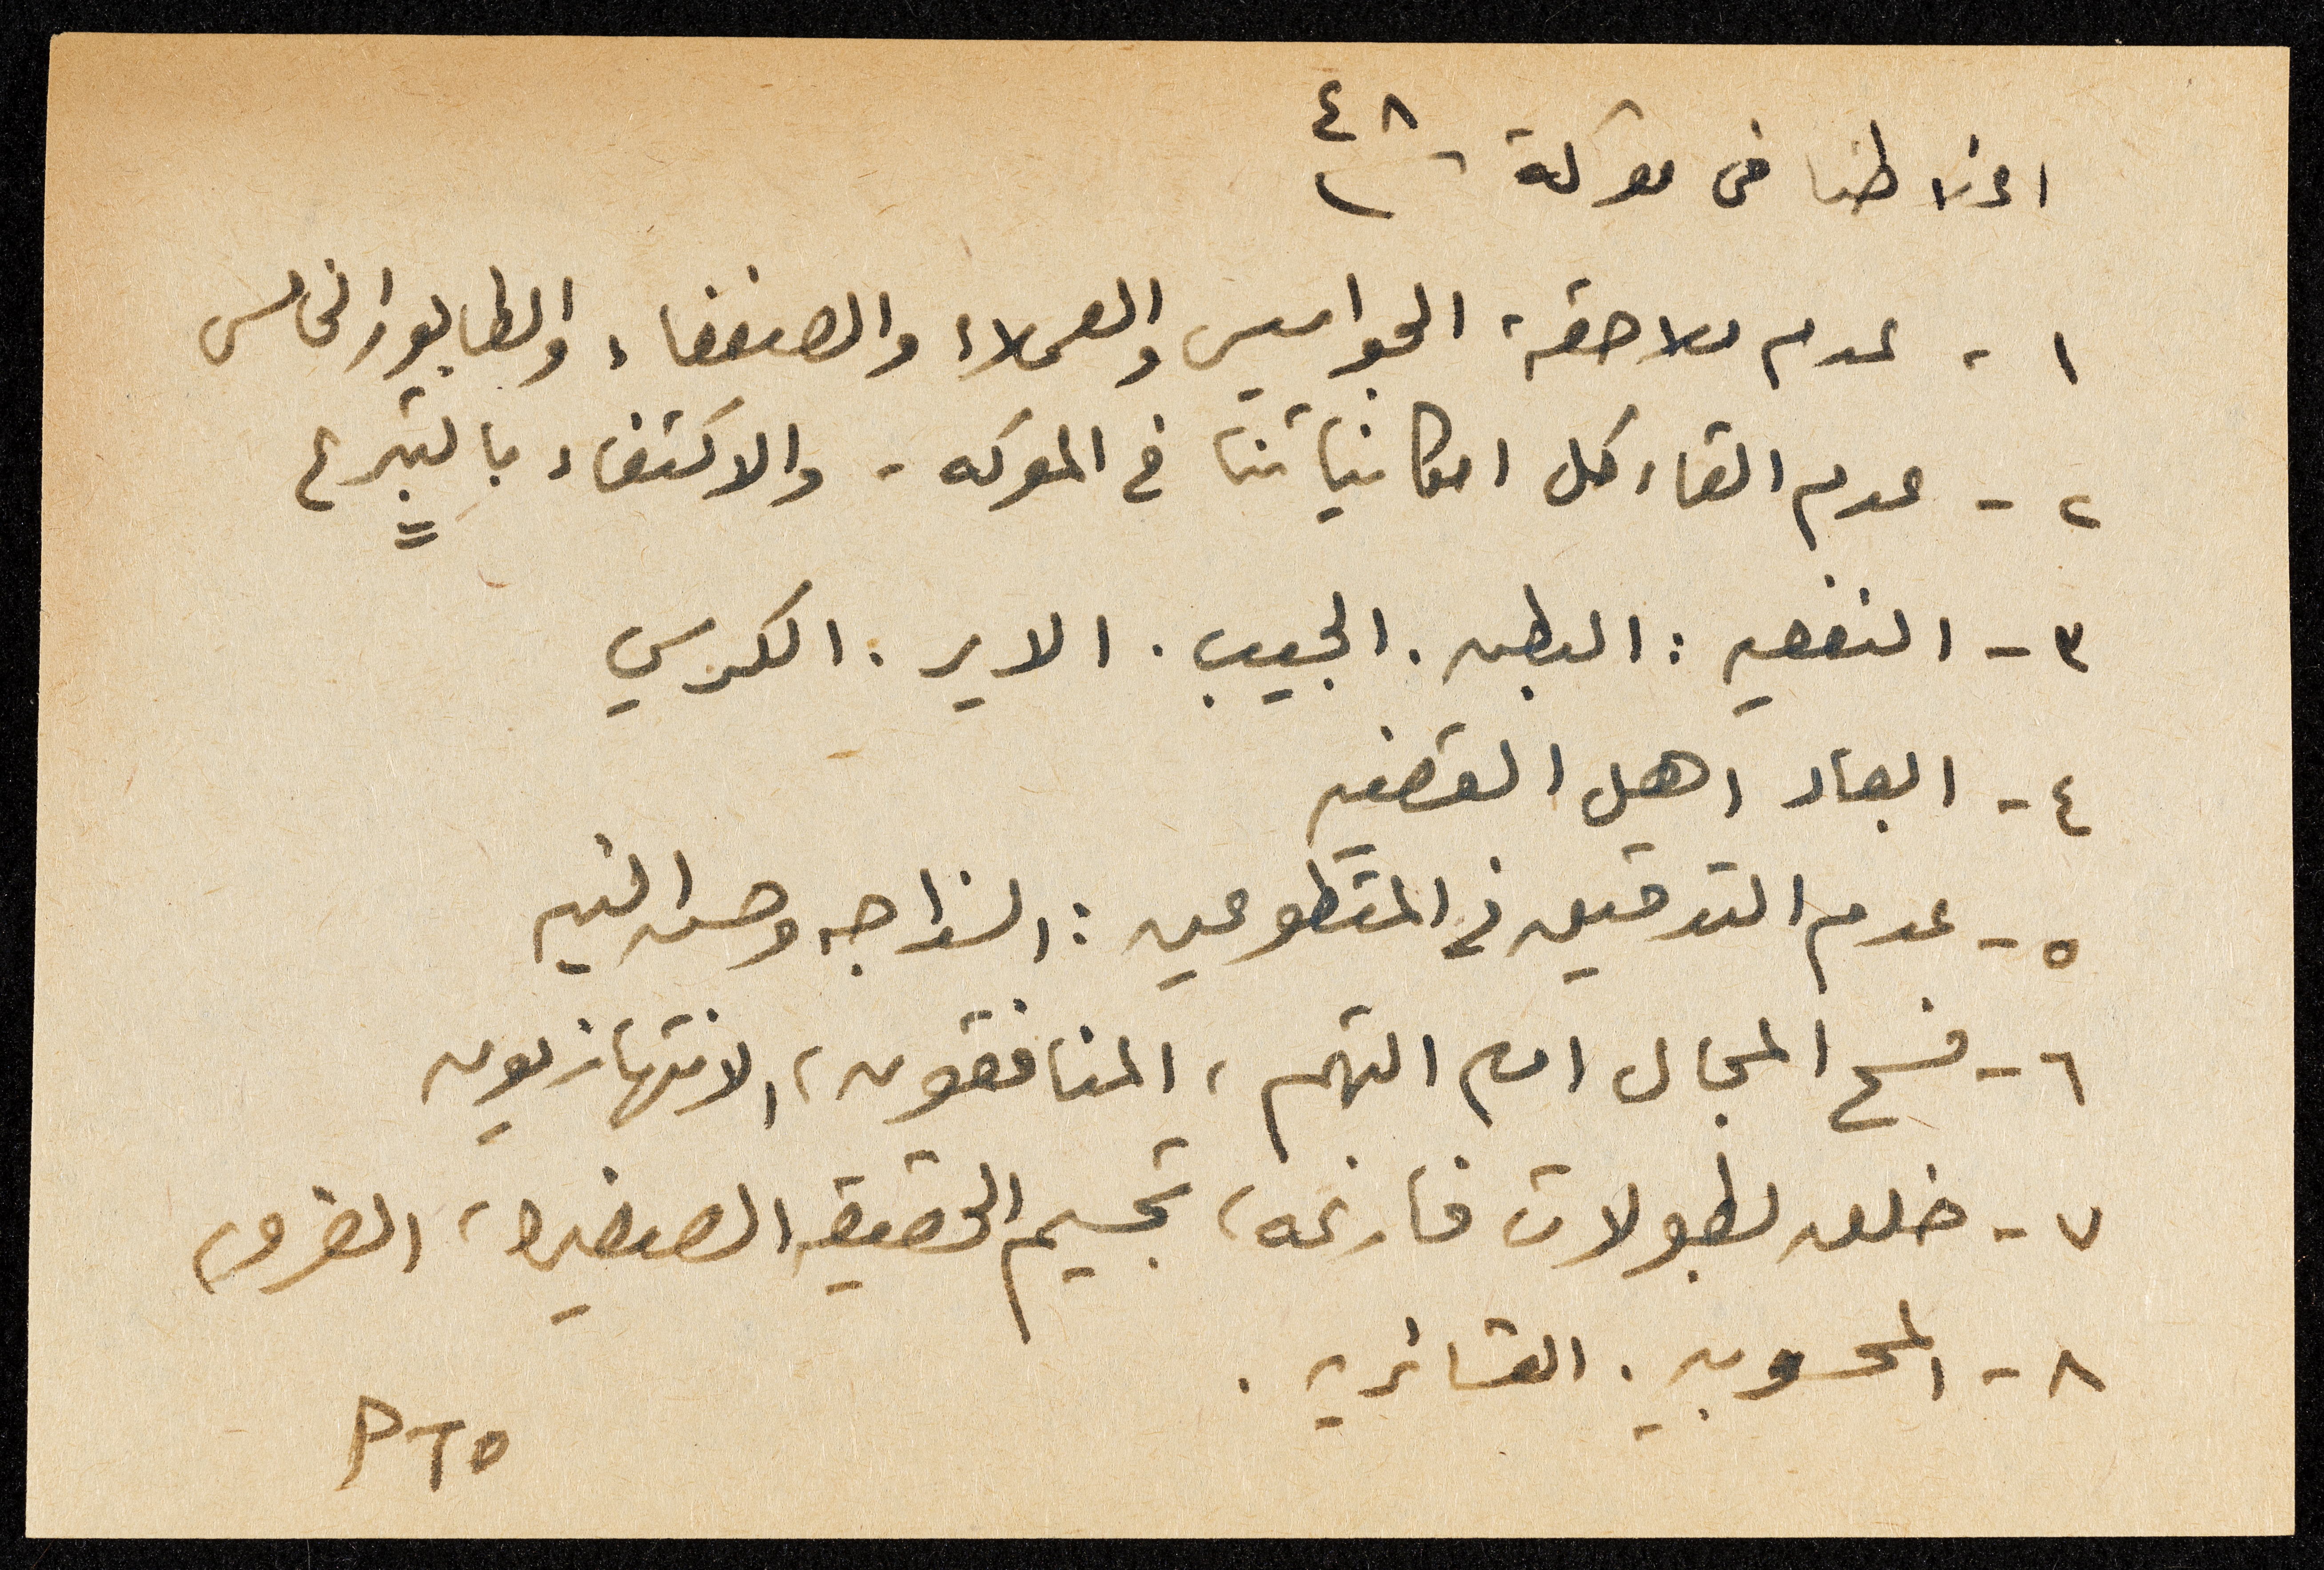 اغلاطنا في معركة ٤٨
١ - عدم ملاحقة الجواسيس والعملاء والضعفاء والطابور الخامس
٢ - عدم القاء كل امكانياتنا في المعركه - والاكتفاء بالتبرع
٣ - النفعيه : البطن . الجيب . الاير . الكرسي
٤ - ابعاد اهل القضيه
٥ - عدم التدقيق في المتطوعين : السذاجه وحسن النيه
٦ - فسح المجال امام التهم ، المنافقون ، الانتهازيون
٧ - خلق بطولات فارغه ، تجسيم الحقيقه الصغيره ، الغرور
٨ - المحسوبيه . العشائريه .
PTO